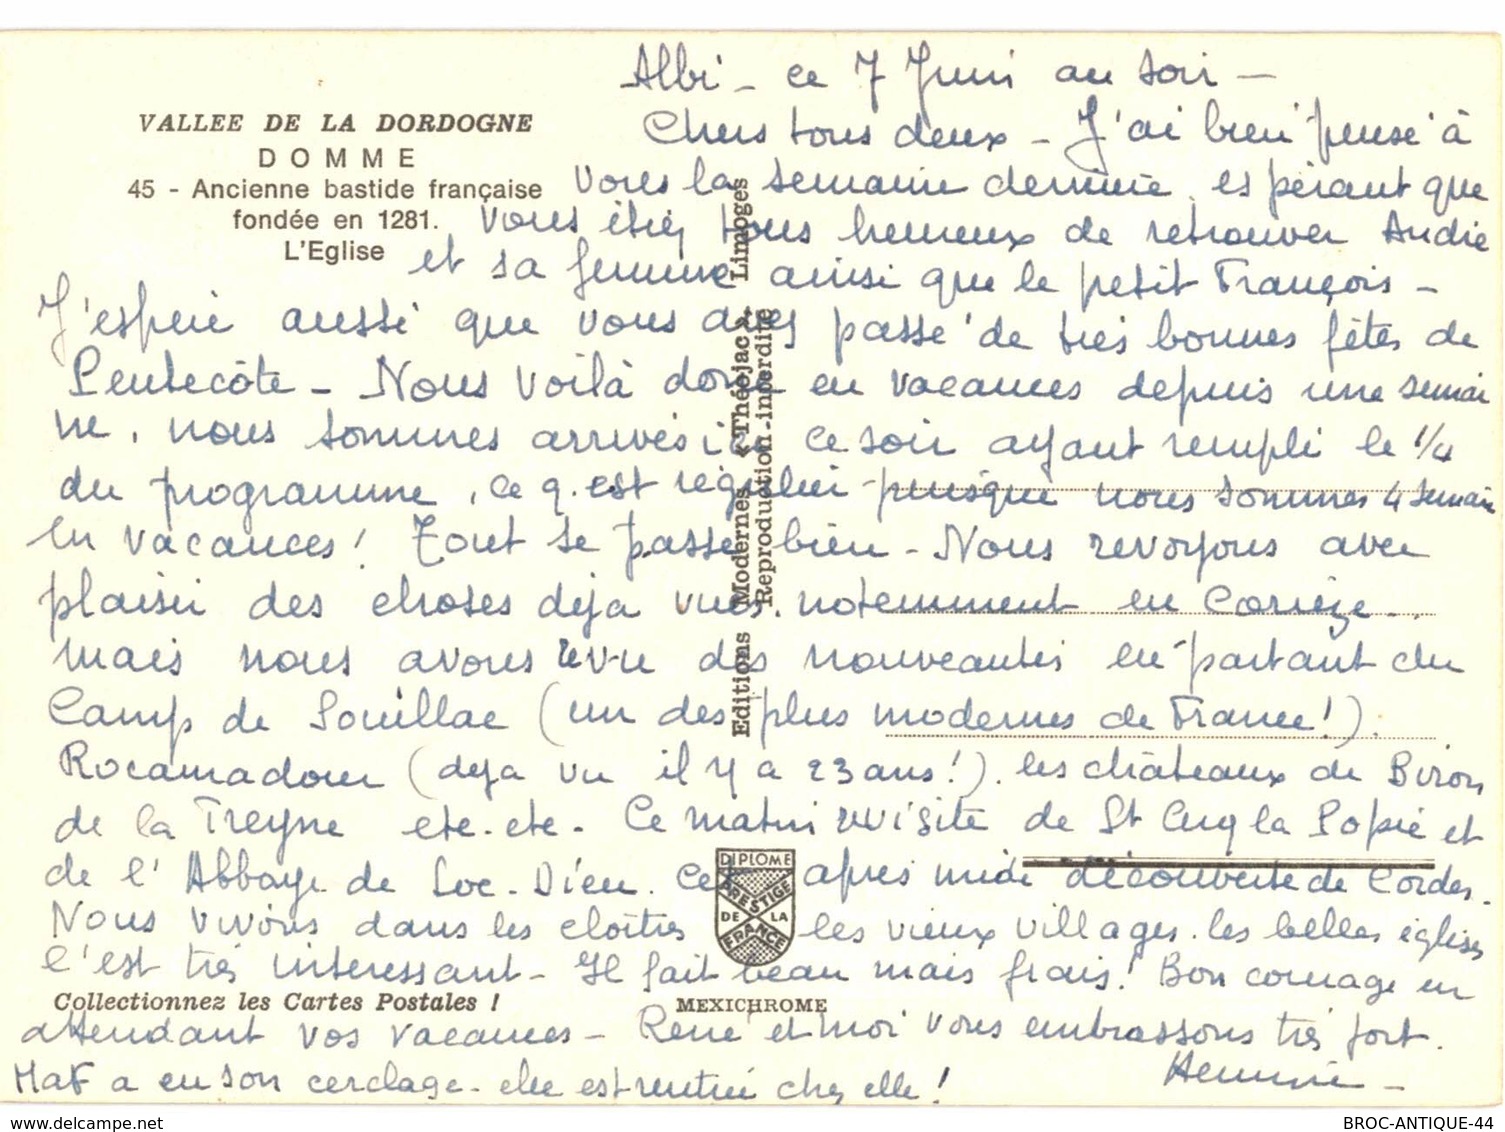 Albi - ce 7 Juin au soir -
VALLEE DE LA DORDOGNE
DOMME
45 - Ancienne bastide française
fondée en 1281.
L'Eglise
Chers tous deux - J'ai bien pensé à
vous la semaine dernière, espérant que
vous étiez tous heureux de retrouver André
et sa femme ainsi que le petit François -
J'espère aussi que vous avez passé de très bonnes fêtes de
Pentecôte - Nous voilà donc en vacances depuis une semai
ne, nous sommes arrivés ici ce soir ayant rempli le 1/4
du programme, ce q. est régulier puisque nous sommes 4 semain
en vacances! Tout se passe bien - Nous revoyons avec
plaisir des choses déja vues, notemment en Corrèze..
mais nous avons vu des nouveautés en partant du
Camp de Souillac (un des plus modernes de France!).
Rocamadour (deja vu il y a 23 ans!). les châteaux de Biron
de la Treyne etc. etc. Ce matin visite de St Cirq la Popie et
de l'Abbaye de Loc-Dieu. Cet après midi découverte de Cordes.
Nous vivons dans les cloîtres les vieux villages. les belles églises
c'est très intéressant - Il fait beau mais frais! Bon courage en
attendant vos vacances - René et moi vous embrassons très fort.
MaF a eu son cerclage - elle est rentrée chez elle!
Editions Modernes « Théojac » - Limoges
Reproduction interdite
DIPLOME
PRESTIGE
DE LA
FRANCE
Collectionnez les Cartes Postales !
MEXICHROME
delcampe.net
BROC-ANTIQUE-44